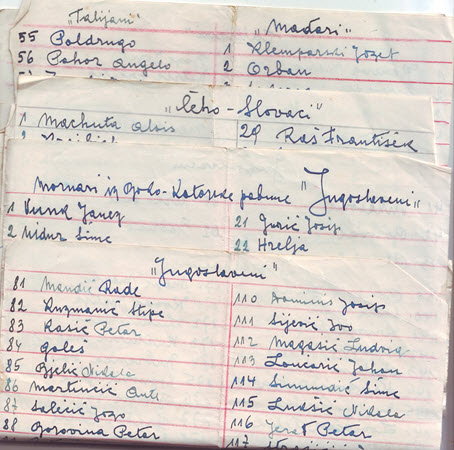 „Talijani"
55 Poldrugo
56 Pahor Angelo
„Mađari"
1 Klemparski Jozef
2 Orban
„Čeho-Slovaci"
1 Machuta Alois
29 Raš František
Mornari iz Boko-Kotorske pobune „Jugoslaveni"
1 Kunk Janez
2 Vidur Šime
21 Gurić Josip
22 Hrelja
„Jugoslaveni"
81 Mandić Rade
82 Ruzmanić Stipe
83 Rašić Petar
84 Goleš
85 Bjelić Nikola
86 Martinčić Ante
87 Jozo
88 Gorovina Petar
110 Dominis Josip
111 Sijerić Ivo
112 Magasić Ludvig
113 Lončarić Johan
114 Simundić Šime
115 Lušić Nikola
116 Petar
117